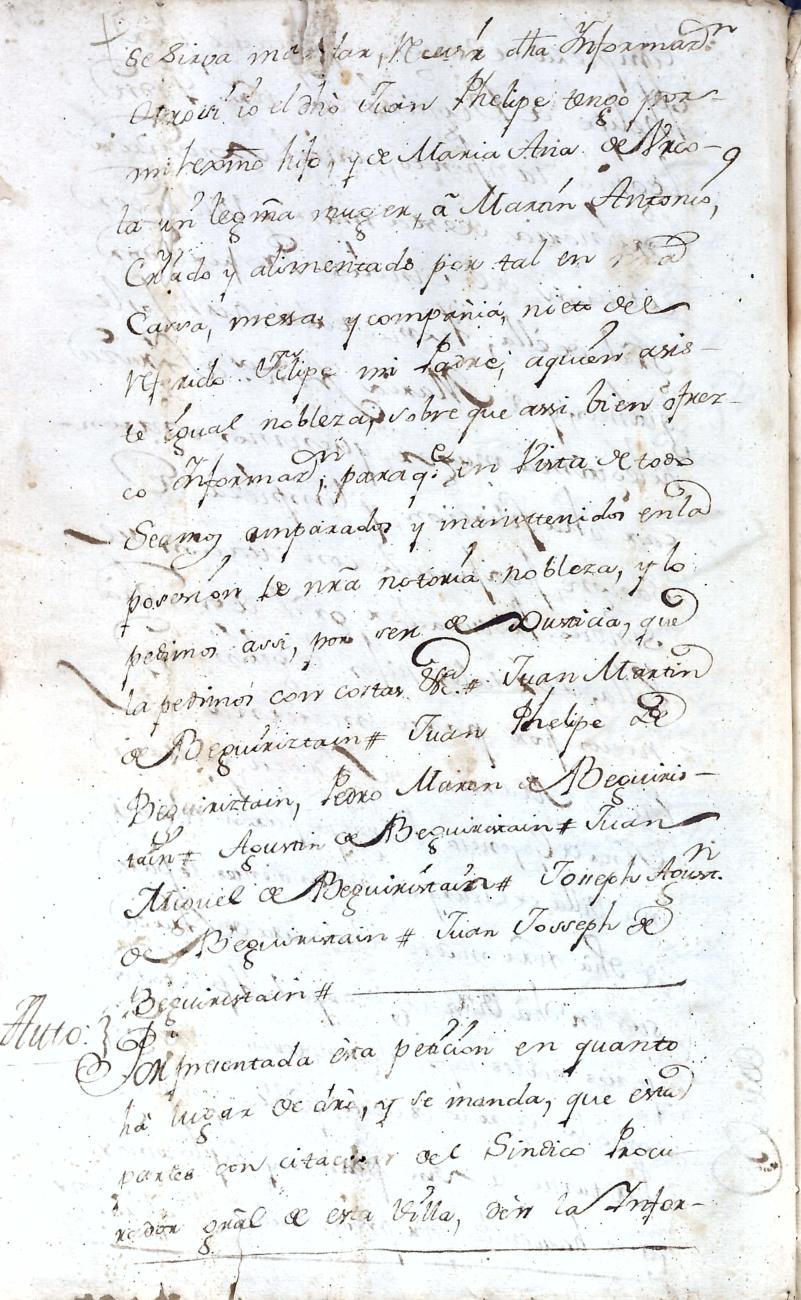 se sirva mandar, Recivir dha Informazn
Otrosi io el dho Juan Phelipe tengo por
mi lexmo hijo, y de Maria Ana de Urco-
la mi legma muger, â Martin Antonio,
Criado y alimentado por tal en mi
Cassa, messa, y compañia, nieto del
referido Felipe mi Padre, aquien asis-
te igual nobleza, sobre que assi bien ofrez-
co Informazn, paraqe en Vista de todo
Seamos amparados y manuttenidos en la
posesion de nra notoria nobleza, y lo
pedimos assi, por ser de Justicia, que
la pedimos con costas &ca # Juan Martin
de Beguiriztain # Juan Phelipe de
Beguiriztain, Pedro Martin de Beguiris-
tain # Agustin de Beguiristain # Juan
Miguel de Beguiristain # Josseph Agustn
de Beguiristain # Juan Josseph de
Beguiristain #
Auto.
Por presentada esta peticion en quanto
ha lugar de dro, y se manda, que estas
partes con citacion del Sindico Procu-
rador gnāl de esta Villa, den la Infor-